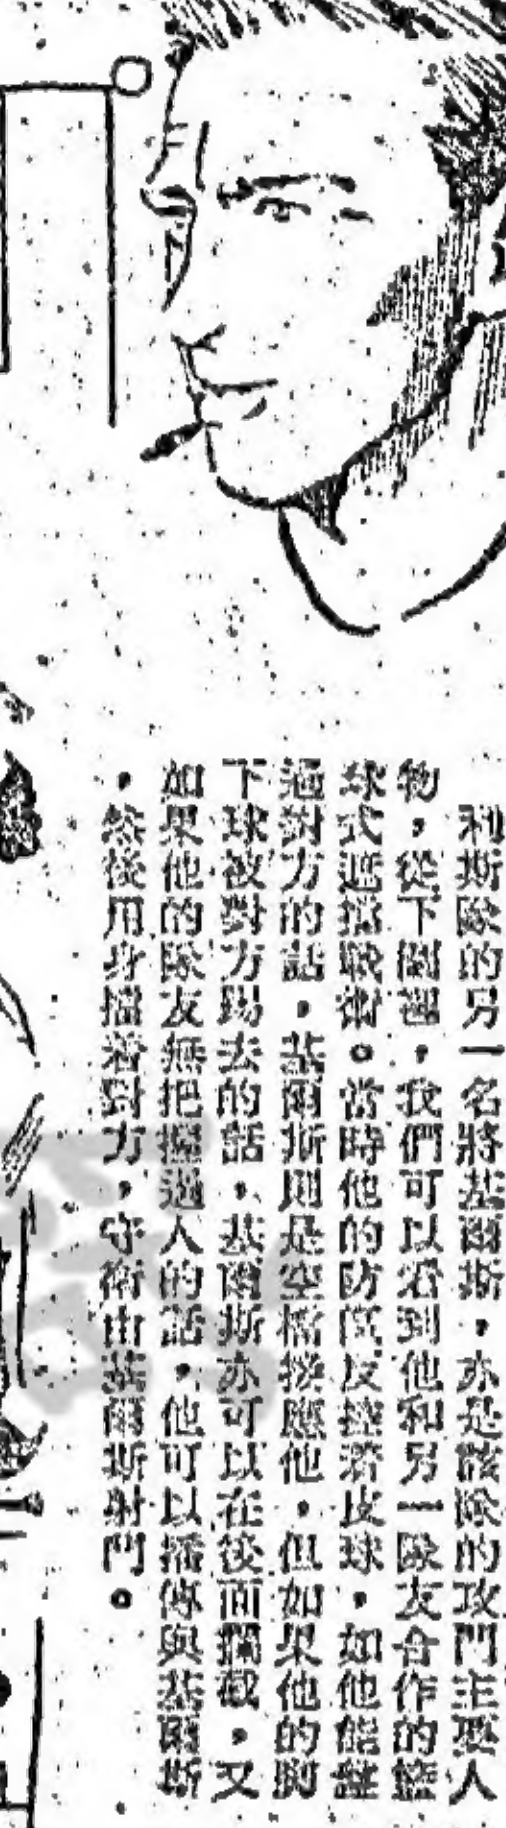 利斯隊的另一名將基爾斯,亦是該隊的攻門主要人
物,從下圖裡,我們可以看到他和另一隊友合作的籃
球式遮擋戰術。當時他的防 反 着皮球,如他能盤
過對方的話,基爾斯則是空檔接應他,但如果他的脚
下球被對方踢去的話,基爾斯亦可以在後面攔截,又
如果他的隊友無把握過人的話,他可以 傳與基爾斯
,然後用身擋着對方,守衛由基爾斯射門。